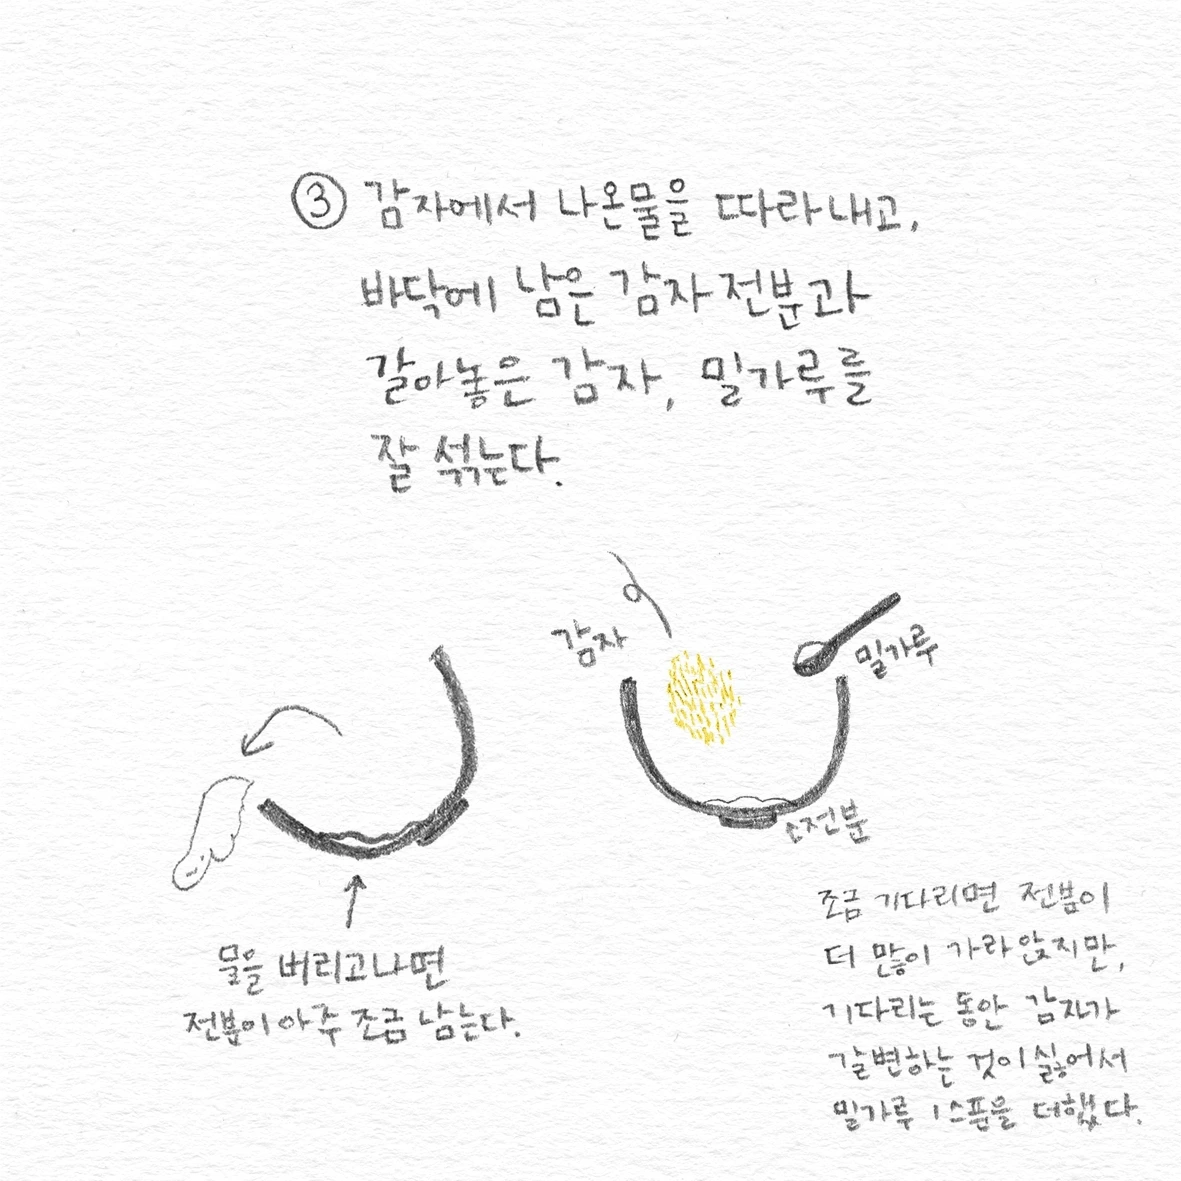 ③ 감자에서 나온물을 따라내고,
바닥에 남은 감자전분과
갈아놓은 감자, 밀가루를
잘 섞는다.
감자
밀가루
전분
물을 버리고나면
전분이 아주 조금 남는다.
조금 기다리면 전분이
더 많이 가라앉지만,
기다리는 동안 감자가
갈변하는 것이 싫어서
밀가루 1스푼을 더했다.